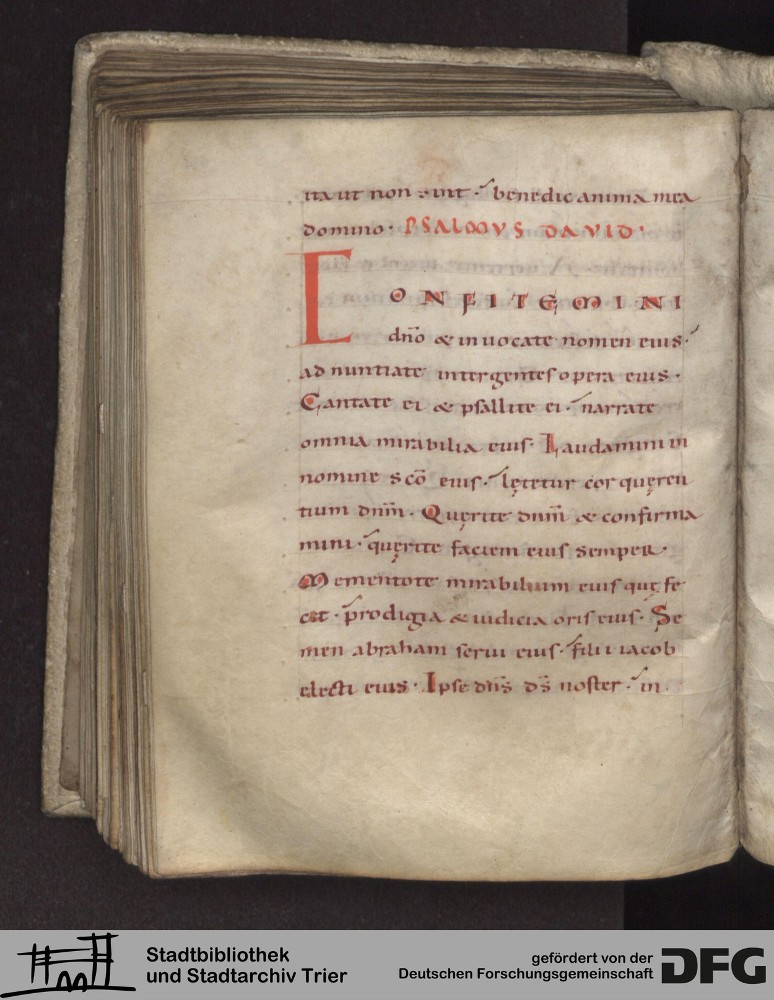 ita ut non sint · benedic anima mea
domino · PSALMVS DAVID ·
CONFITEMINI
dn̄o & inuocate nomen eius ·
adnuntiate inter gentes opera eius ·
Cantate ei & psallite ei · narrate
omnia mirabilia eius · Laudamini in
nomine s̄cō eius · lętetur cor quęren
tium dnm̄ · Quęrite dnm̄ & confirma
mini · quęrite faciem eius semper ·
Mementote mirabilium eius quę fe
cit · prodigia & iudicia oris eius · Se
men abraham serui eius · filii iacob
electi eius · Ipse dn̄s d̄s noster · in
Stadtbibliothek
und Stadtarchiv Trier
gefördert von der
Deutschen Forschungsgemeinschaft
DFG